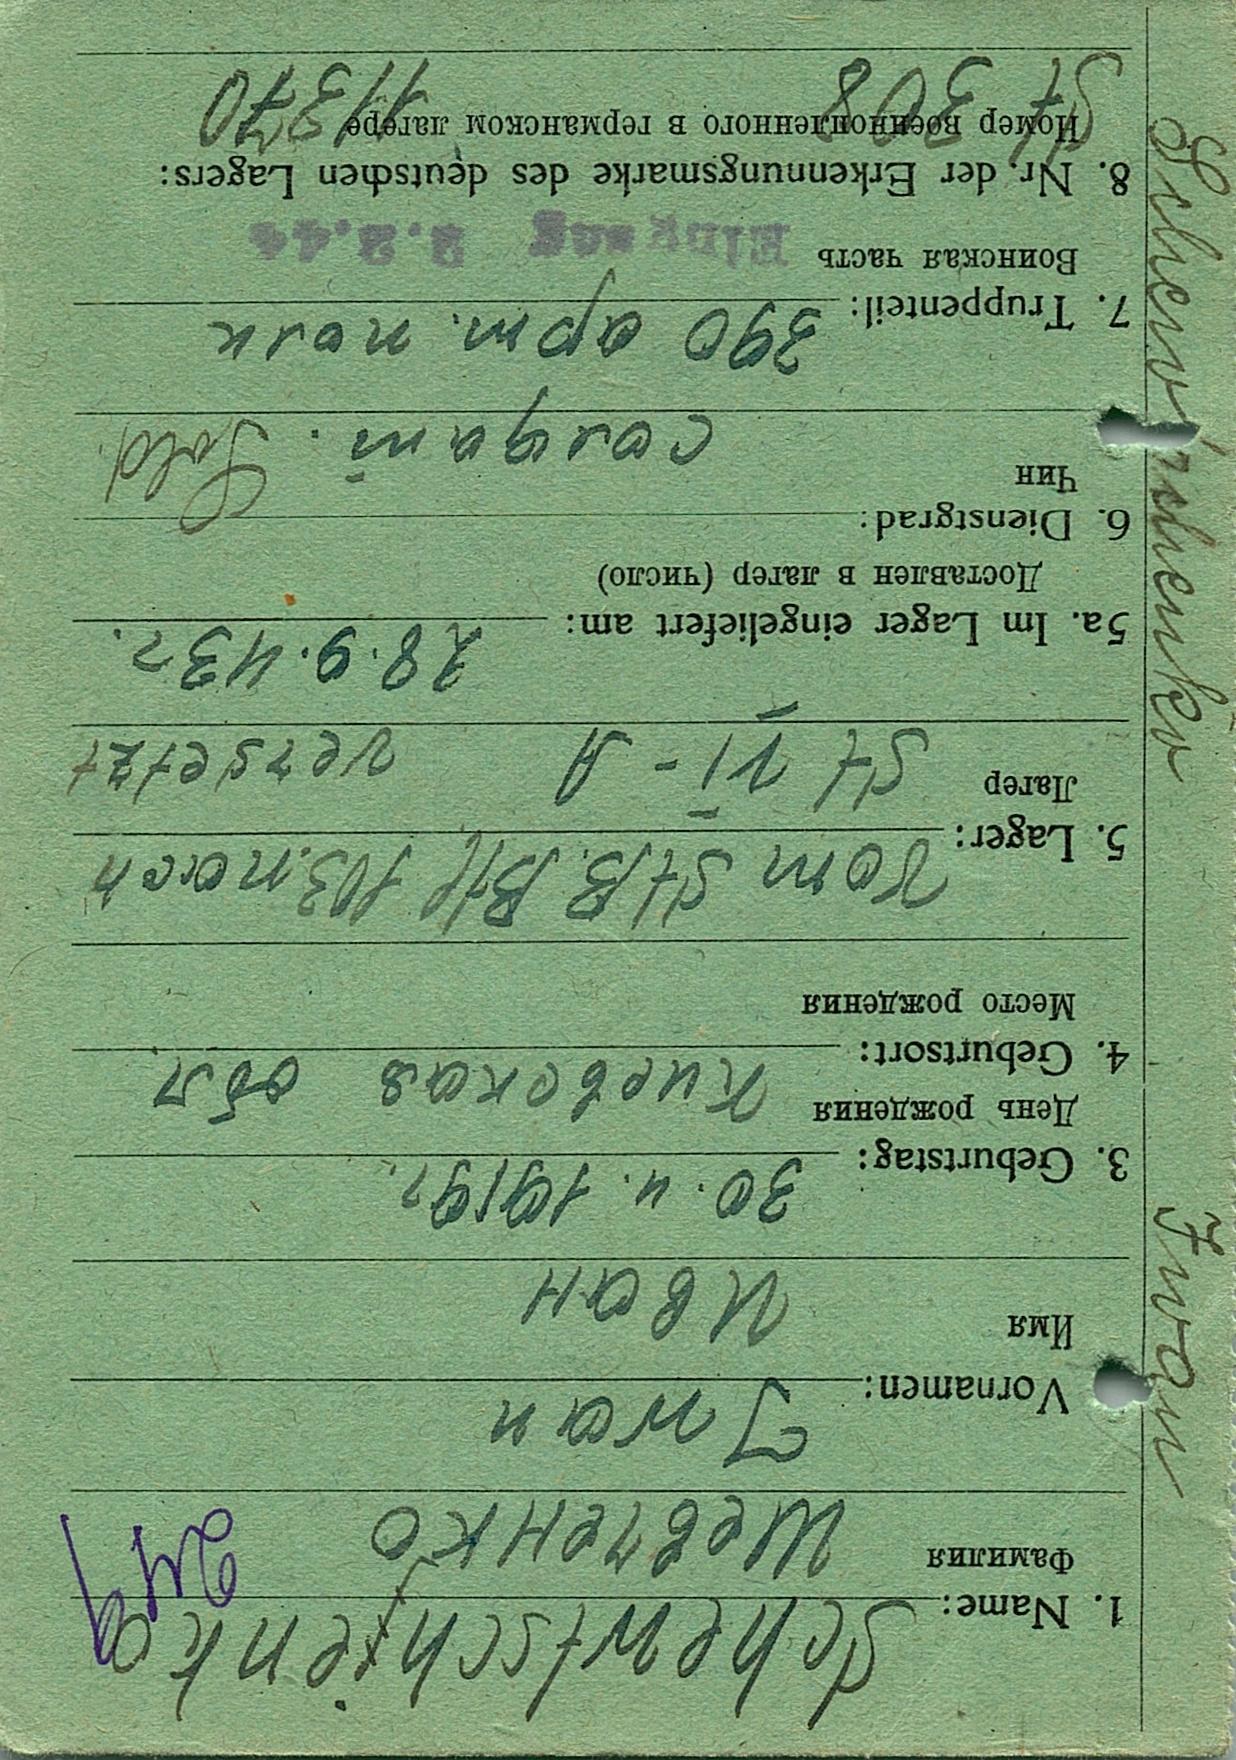 1. Name: Schewtschenko
Фамилия Шевченко
Vornamen: Iwan
Имя Иван
3. Geburtstag: 30. 4. 1919 г.
День рождения
4. Geburtsort: Киевская обл
Место рождения
5. Lager: Vom St/B. Btl
Лагер St VI - A versetzt
5a. Im Lager eingeliefert am: 28. 9. 43 г.
Доставлен в лагер (число)
6. Dienstgrad:
Чин солдат. Sold.
7. Truppenteil: 390 арт. полк
Воинская часть Eingang 3.2.44
8. Nr. der Erkennungsmarke des deutschen Lagers:
Номер военнопленного в германском лагере
St 308 11370
Iwan Schewtschenko